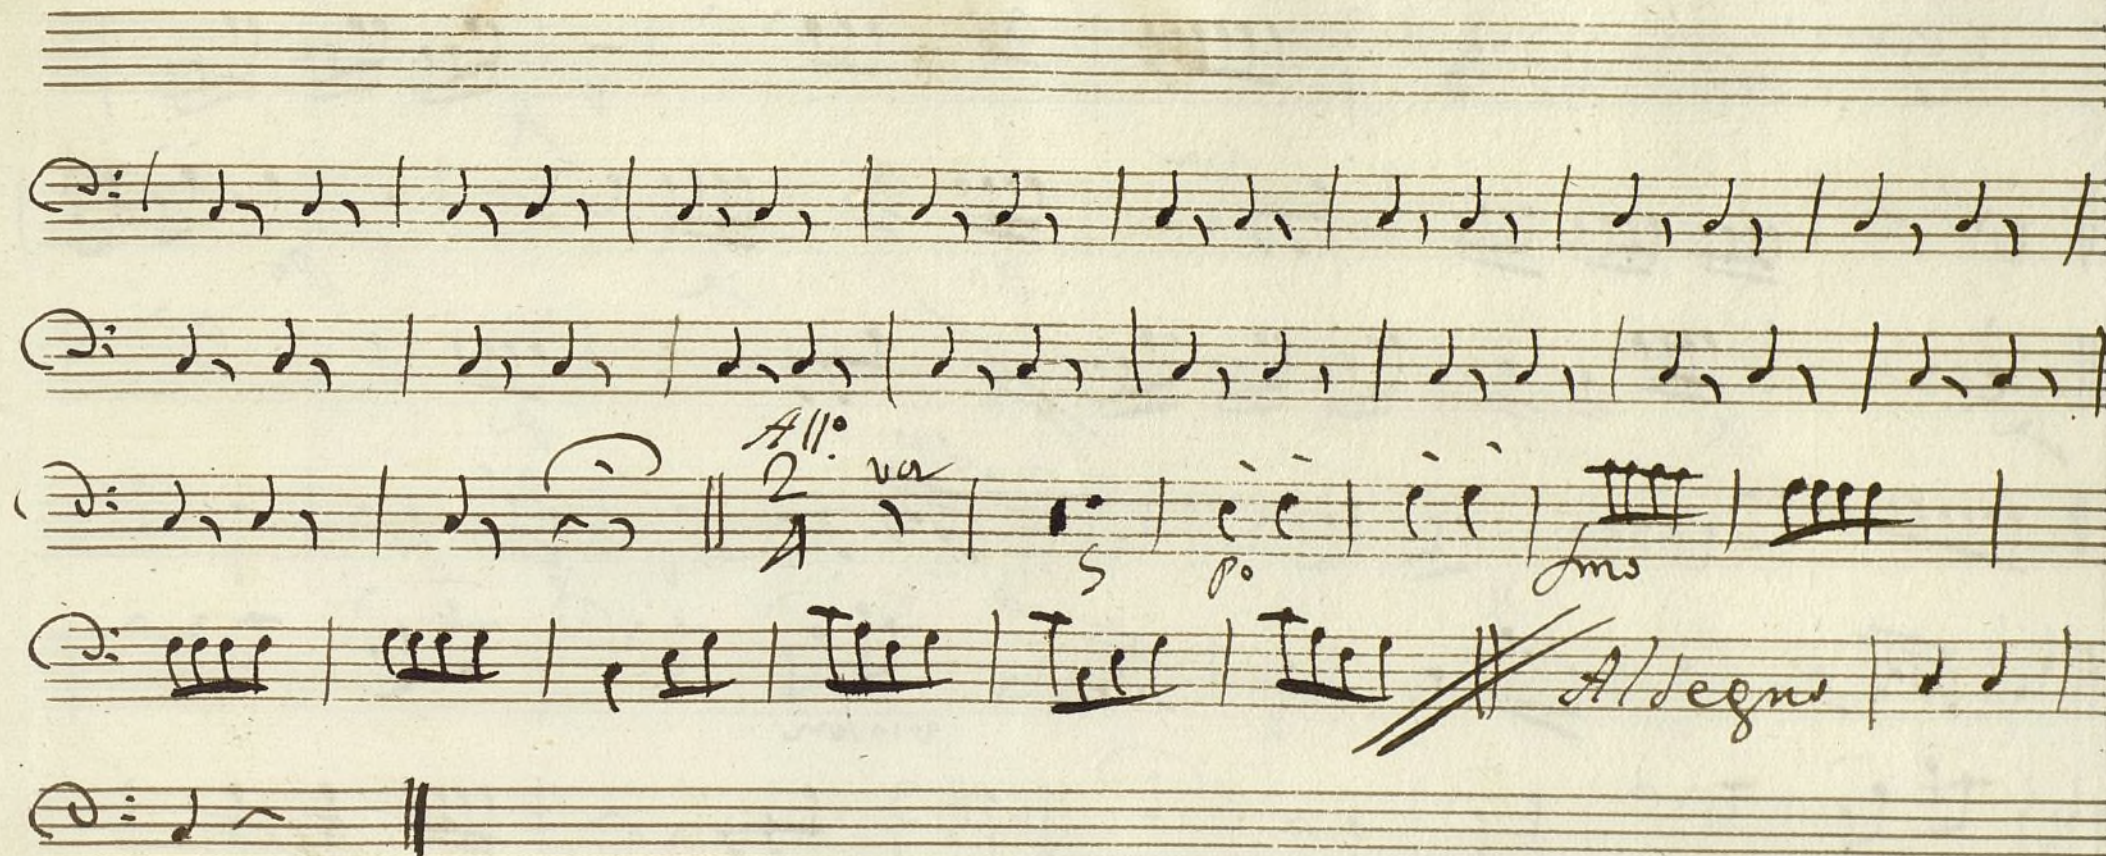 All:º
2 va
4
S pº fmo
Al Segno